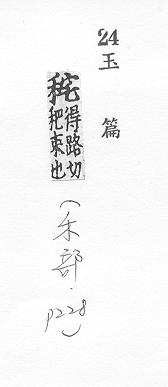 24
玉篇
得路切
束也
(禾部.
p228)